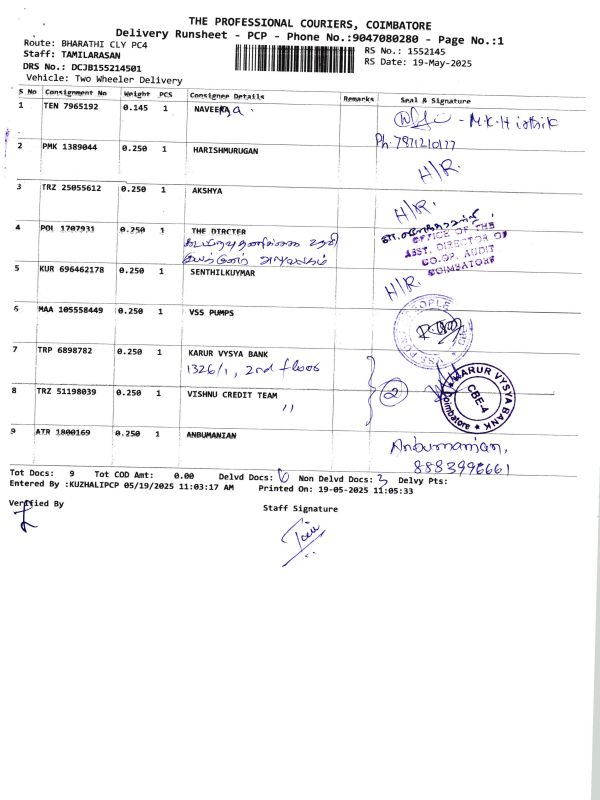 THE PROFESSIONAL COURIERS, COIMBATORE
Delivery Runsheet - PCP - Phone No.:9047080280 - Page No.:1
Route: BHARATHI CLY PC4
RS No.: 1552145
Staff: TAMILARASAN
RS Date: 19-May-2025
DRS No.: DCJB155214501
Vehicle: Two Wheeler Delivery
S No Consignment No Weight PCS Consignee Details Remarks Seal & Signature
1 TEN 7965192 0.145 1 NAVEENA
Ph: 7871210177
2 PMK 1389044 0.250 1 HARISHMURUGAN H/R.
3 TRZ 25055612 0.250 1 AKSHYA H/R.
4 POL 1707931 0.250 1 THE DIRCTER
OFFICE OF THE
ASST. DIRECTOR OF
CO-OP. AUDIT
COIMBATORE
5 KUR 696462178 0.250 1 SENTHILKUYMAR H/R.
6 MAA 105558449 0.250 1 VSS PUMPS
7 TRP 6898782 0.250 1 KARUR VYSYA BANK
1326/1, 2nd floor
2
KARUR VYSYA BANK
CBE-4
Coimbatore
8 TRZ 51198039 0.250 1 VISHNU CREDIT TEAM
"
9 ATR 1800169 0.250 1 ANBUMANIAN Anbumanian,
8883996661
Tot Docs: 9 Tot COD Amt: 0.00 Delvd Docs: 6 Non Delvd Docs: 3 Delvy Pts:
Entered By :KUZHALIPCP 05/19/2025 11:03:17 AM Printed On: 19-05-2025 11:05:33
Verified By
Staff Signature